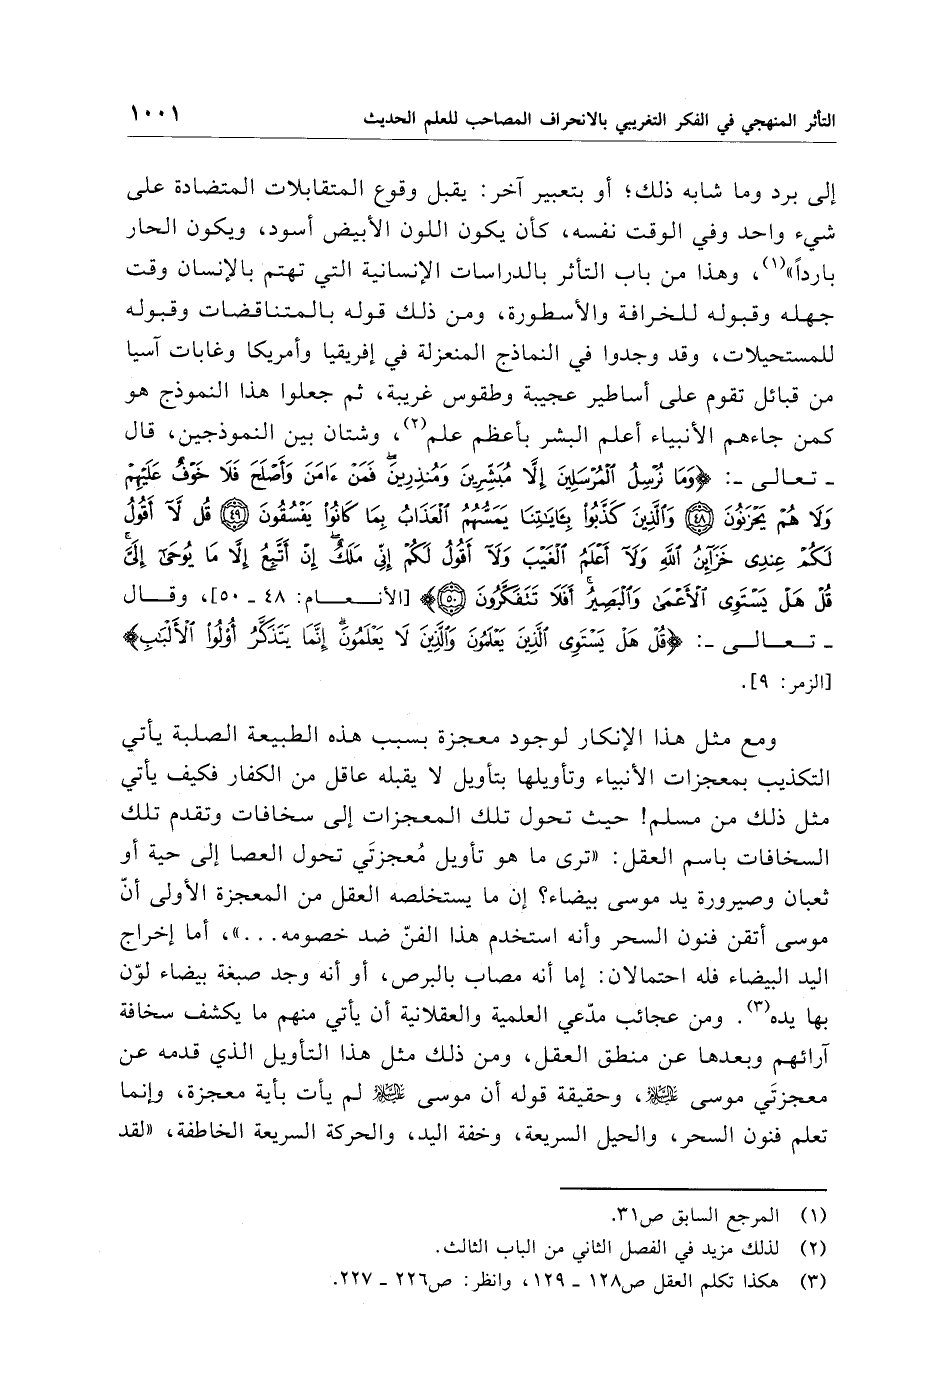 التأثر المنهجي في الفكر التغريبي بالانحراف المصاحب للعلم الحديث ١٠٠١
إلى برد وما شابه ذلك؛ أو بتعبير آخر: يقبل وقوع المتقابلات المتضادة على
شيء واحد وفي الوقت نفسه، كأن يكون اللون الأبيض أسود، ويكون الحار
بارداً»(١)، وهذا من باب التأثر بالدراسات الإنسانية التي تهتم بالإنسان وقت
جهله وقبوله للخرافة والأسطورة، ومن ذلك قوله بالمتناقضات وقبوله
للمستحيلات، وقد وجدوا في النماذج المنعزلة في إفريقيا وأمريكا وغابات آسيا
من قبائل تقوم على أساطير عجيبة وطقوس غريبة، ثم جعلوا هذا النموذج هو
كمن جاءهم الأنبياء أعلم البشر بأعظم علم(٢)، وشتان بين النموذجين، قال
ـ تعالى ـ: ﴿وَمَا نُرْسِلُ ٱلْمُرْسَلِينَ إِلَّا مُبَشِّرِينَ وَمُنذِرِينَۖ فَمَنْ ءَامَنَ وَأَصْلَحَ فَلَا خَوْفٌ عَلَيْهِمْ
وَلَا هُمْ يَحْزَنُونَ ٤٨ وَٱلَّذِينَ كَذَّبُوا۟ بِـَٔايَٰتِنَا يَمَسُّهُمُ ٱلْعَذَابُ بِمَا كَانُوا۟ يَفْسُقُونَ ٤٩ قُل لَّآ أَقُولُ
لَكُمْ عِندِى خَزَآئِنُ ٱللَّهِ وَلَآ أَعْلَمُ ٱلْغَيْبَ وَلَآ أَقُولُ لَكُمْ إِنِّى مَلَكٌۖ إِنْ أَتَّبِعُ إِلَّا مَا يُوحَىٰٓ إِلَىَّۚ
قُلْ هَلْ يَسْتَوِى ٱلْأَعْمَىٰ وَٱلْبَصِيرُۚ أَفَلَا تَتَفَكَّرُونَ ٥٠﴾ [الأنعام: ٤٨ ـ ٥٠]، وقال
ـ تعالى ـ: ﴿قُلْ هَلْ يَسْتَوِى ٱلَّذِينَ يَعْلَمُونَ وَٱلَّذِينَ لَا يَعْلَمُونَۗ إِنَّمَا يَتَذَكَّرُ أُو۟لُوا۟ ٱلْأَلْبَٰبِ﴾
[الزمر: ٩].
ومع مثل هذا الإنكار لوجود معجزة بسبب هذه الطبيعة الصلبة يأتي
التكذيب بمعجزات الأنبياء وتأويلها بتأويل لا يقبله عاقل من الكفار فكيف يأتي
مثل ذلك من مسلم! حيث تحول تلك المعجزات إلى سخافات وتقدم تلك
السخافات باسم العقل: «ترى ما هو تأويل مُعجزتَي تحول العصا إلى حية أو
ثعبان وصيرورة يد موسى بيضاء؟ إن ما يستخلصه العقل من المعجزة الأولى أنّ
موسى أتقن فنون السحر وأنه استخدم هذا الفنّ ضد خصومه...»، أما إخراج
اليد البيضاء فله احتمالان: إما أنه مصاب بالبرص، أو أنه وجد صبغة بيضاء لوّن
بها يده(٣). ومن عجائب مدّعي العلمية والعقلانية أن يأتي منهم ما يكشف سخافة
آرائهم وبعدها عن منطق العقل، ومن ذلك مثل هذا التأويل الذي قدمه عن
معجزتَي موسى عليه السلام، وحقيقة قوله أن موسى عليه السلام لم يأت بأية معجزة، وإنما
تعلم فنون السحر، والحيل السريعة، وخفة اليد، والحركة السريعة الخاطفة، «لقد
(١) المرجع السابق ص٣١.
(٢) لذلك مزيد في الفصل الثاني من الباب الثالث.
(٣) هكذا تكلم العقل ص١٢٨ ـ ١٢٩، وانظر: ص٢٢٦ ـ ٢٢٧.